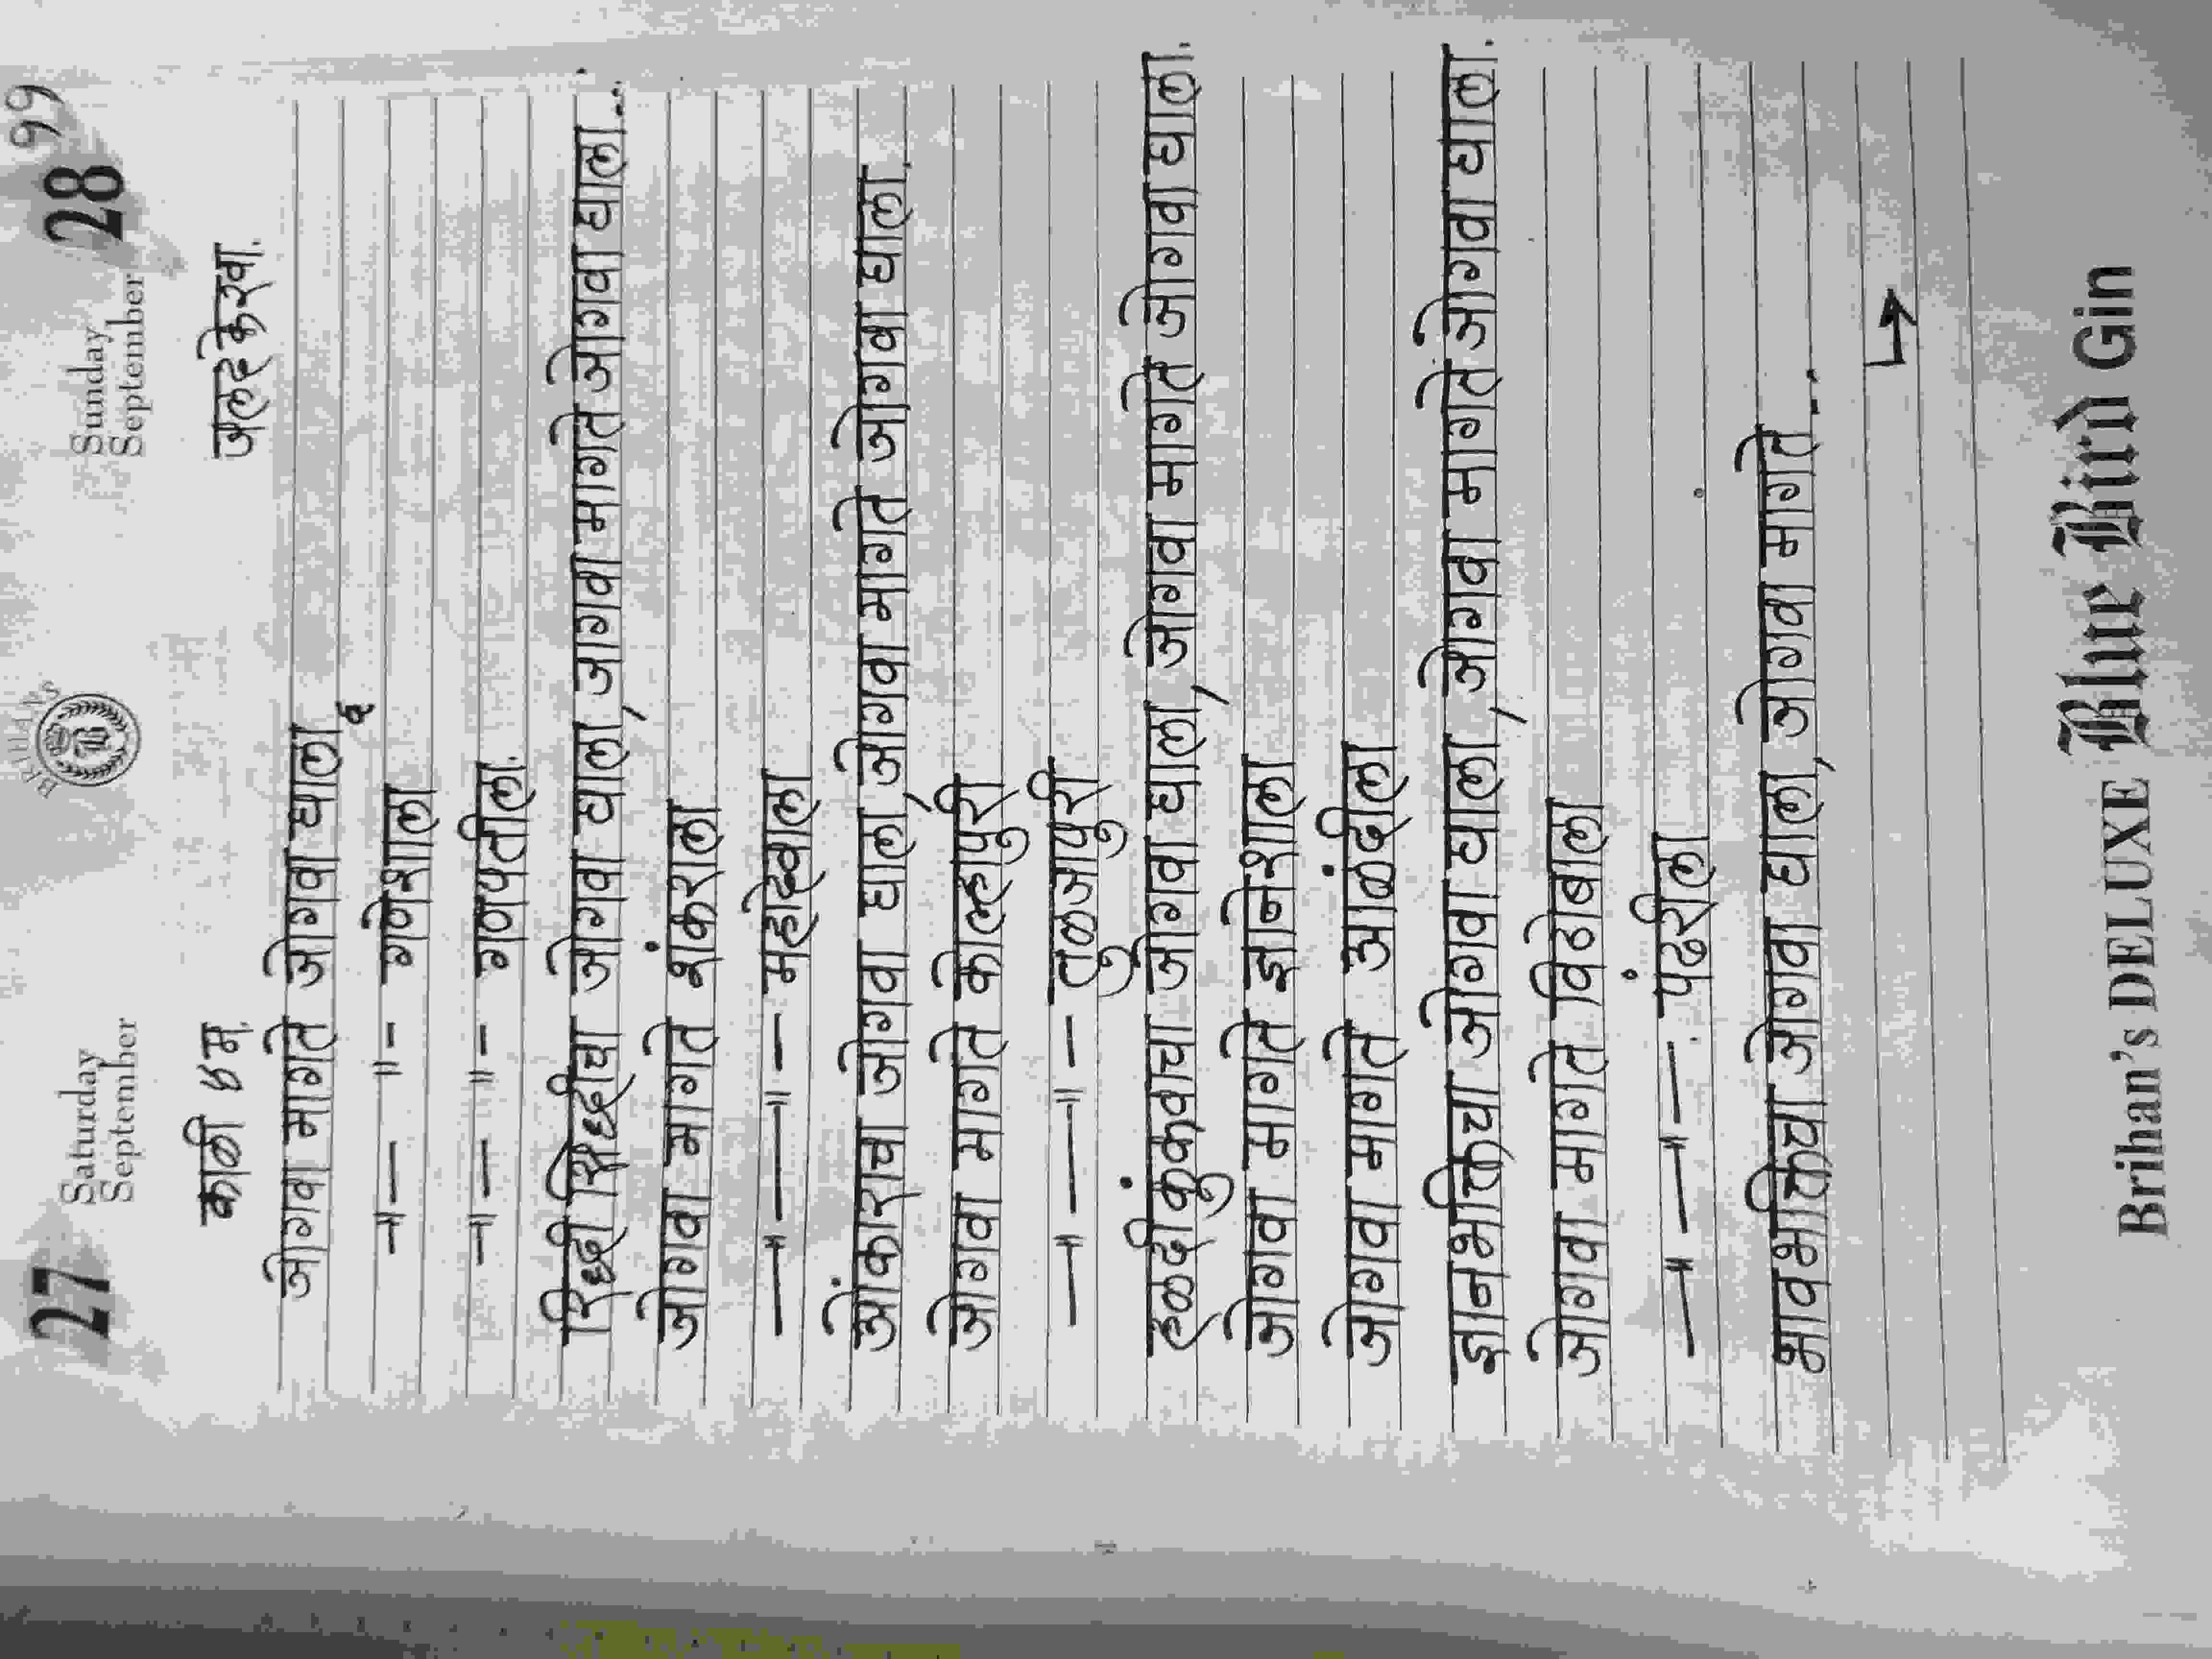 27 Saturday September BRIHANS B Sunday September 28 99
काळी ४ म. जलद केरवा.
जोगवा मागते जोगवा घाला,
—॥— ॥— गणेशाला
—॥— ॥— गणपतीला.
रिध्दी सिध्दीचा जोगवा घाला, जागवा मागते जोगवा घाला...
जोगवा मागते शंकराला
—॥—॥— महादेवाला
ओंकाराचा जोगवा घाला, जोगवा मागते जोगवा घाला.
जोगवा मागते कोल्हापुरी
—॥—॥— तुळजापुरी
हळदीकुंकवाचा जोगवा घाला, जोगवा मागते जोगवा घाला.
जोगवा मागते ज्ञानेशाला
जोगवा मागते आळंदीला
ज्ञानभक्तिचा जोगवा घाला, जोगवा मागते जोगवा घाला.
जोगवा मागते विठोबाला
—॥—॥— पंढरीला
भावभक्तिचा जोगवा घाला, जोगवा मागते...
Brihan's DELUXE Blue Bird Gin